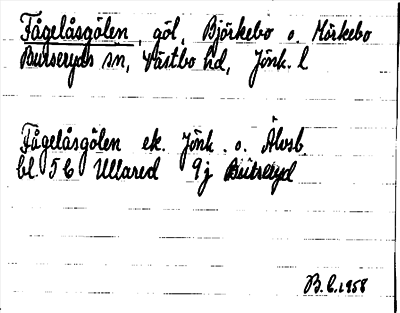 Fågelåsgölen, göl, Björkebo o. Mörkebo
Burseryds sn, Västbo hd, Jönk. l
Fågelåsgölen ek. Jönk. o. Älvsb.
bl. 5C Ullared 9j Burseryd
B.C. 1958